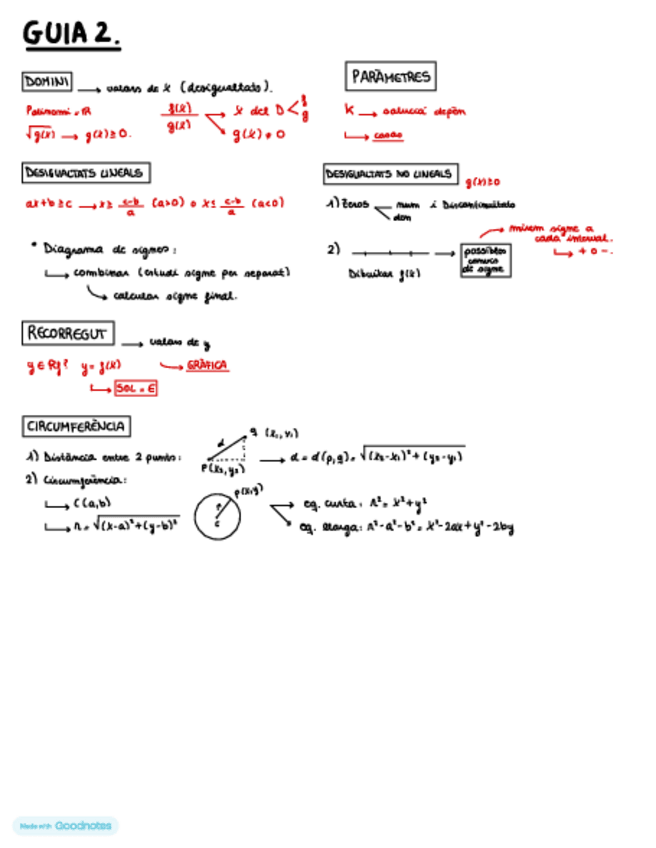 GUIA 2.
DOMINI → valors de x (desigualtats).
Polinomi = ℝ
√g(x) → g(x) ≥ 0.
f(x)/g(x)
x del D < f g
g(x) ≠ 0
PARÀMETRES
K → solució depèn
↳ casos
DESIGUALTATS LINEALS
ax+b ≥ c → x ≥ (c-b)/a (a>0) o x ≤ (c-b)/a (a<0)
* Diagrama de signes:
↳ combinar (estudi signe per separat)
↳ calcular signe final.
DESIGUALTATS NO LINEALS
g(x) ≥ 0
1) Zeros
num i Discontinuïtats
den
2)
Dibuixar f(x)
possibles canvis de signe
mirem signe a
cada interval.
↳ + o -.
RECORREGUT → valors de y
y ∈ Rf? y = f(x) → GRÀFICA
↳ SOL = ∈
CIRCUMFERÈNCIA
1) Distància entre 2 punts:
d
q (x₁, y₁)
p(x₂, y₂)
→ d = d(p,q) = √(x₂-x₁)²+(y₂-y₁)
2) Circumferència:
↳ C(a,b)
↳ r = √(x-a)²+(y-b)²
p(x,y)
r
c
eq. curta: r² = x²+y²
eq. llarga: r²-a²-b² = x²-2ax+y²-2by
Made with Goodnotes